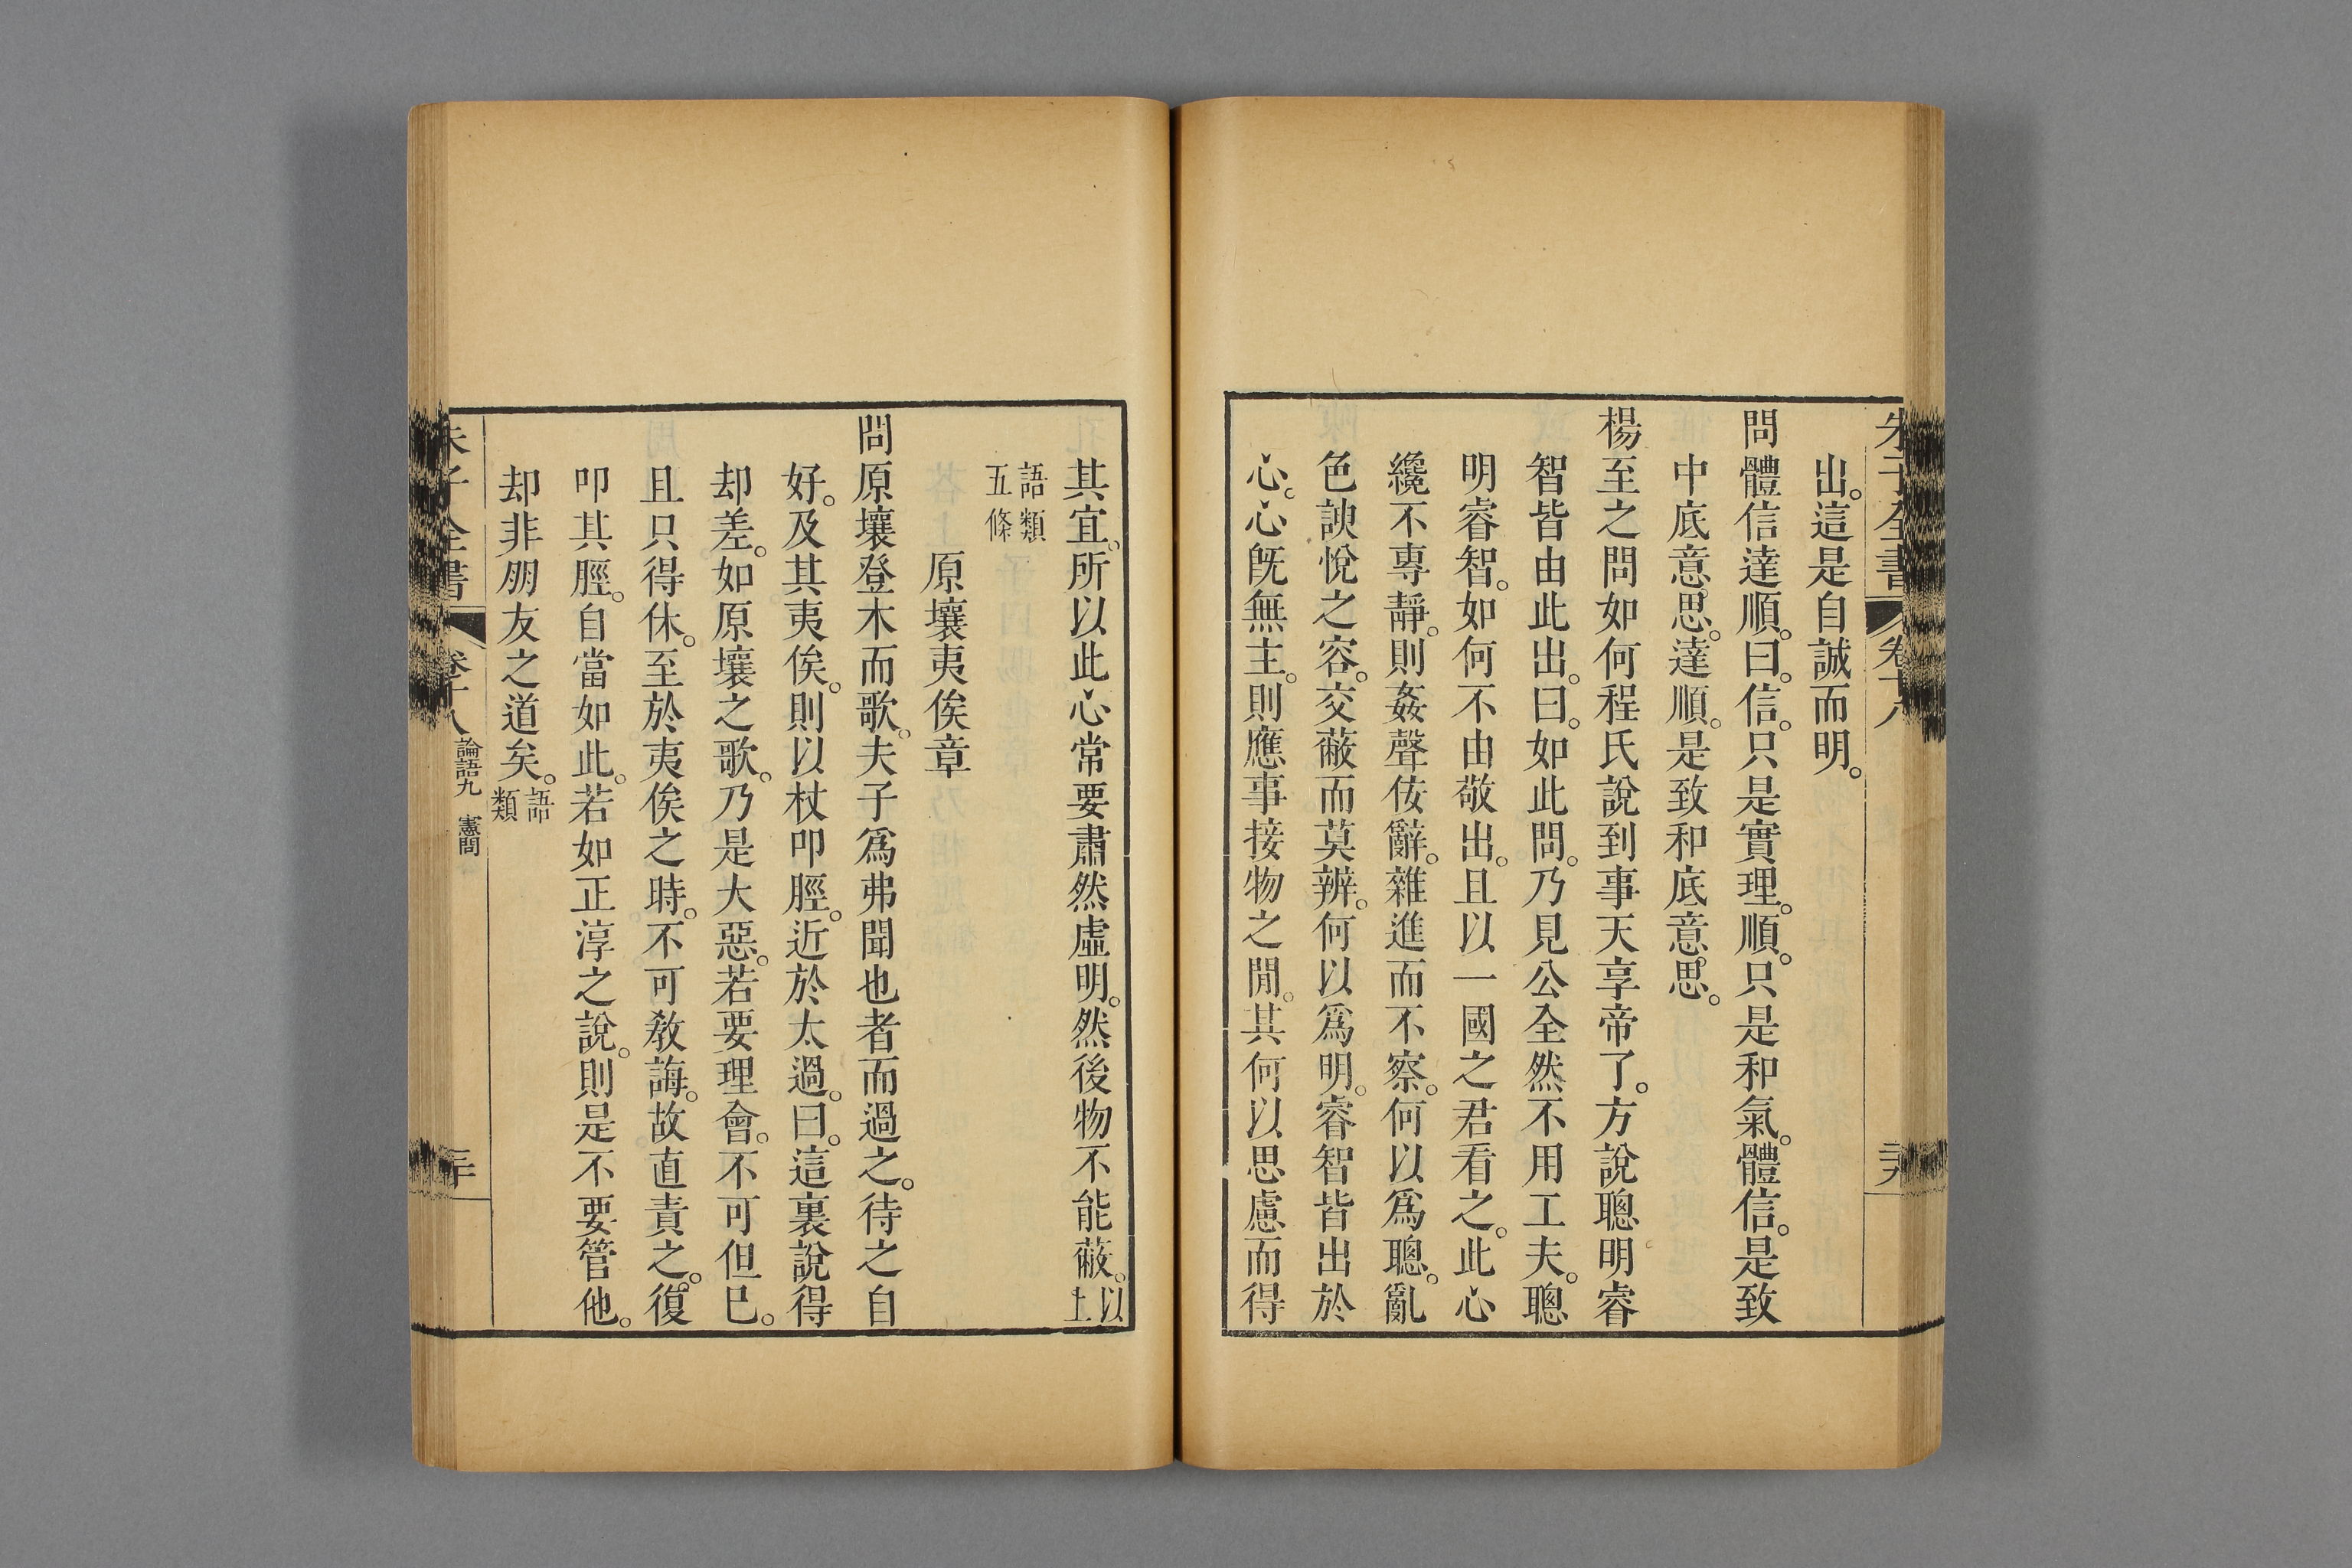 朱子全書 卷十八
出。這是自誠而明。
問體信達順。曰。信。只是實理。順。只是和氣。體信。是致
中底意思。達順。是致和底意思。
楊至之問如何程氏說到事天享帝了。方說聰明睿
智皆由此出。曰。如此問。乃見公全然不用工夫。聰
明睿智。如何不由敬出。且以一國之君看之。此心
纔不專靜。則姦聲佞辭。雜進而不察。何以爲聰。亂
色諛悅之容。交蔽而莫辨。何以爲明。睿智皆出於
心。心旣無主。則應事接物之閒。其何以思慮而得
其宜。所以此心常要肅然虛明。然後物不能蔽。以上
語類
五條
原壤夷俟章
問原壤登木而歌。夫子爲弗聞也者而過之。待之自
好。及其夷俟。則以杖叩脛。近於太過。曰。這裏說得
却差。如原壤之歌。乃是大惡。若要理會。不可但已。
且只得休。至於夷俟之時。不可敎誨。故直責之。復
叩其脛。自當如此。若如正淳之說。則是不要管他。
却非朋友之道矣。語類
朱子全書 卷十八 論語九 憲問 三十